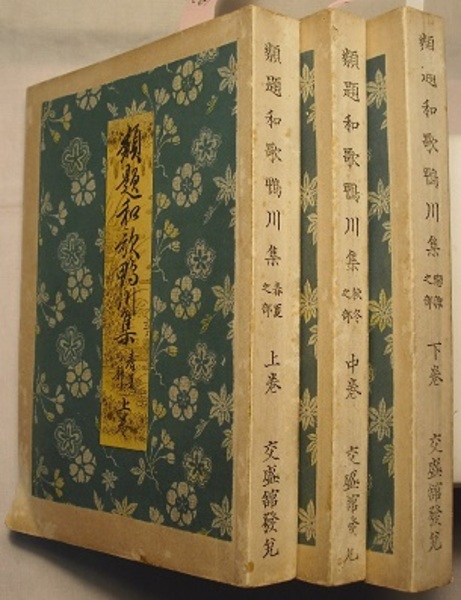 類題和歌鴨川集 春夏之部 上巻
類題和歌鴨川集 春夏之部 上巻 交盛館發兌
類題和歌鴨川集 秋冬之部 中巻 交盛館發兌
類題和歌鴨川集 戀雜之部 下巻 交盛館發兌